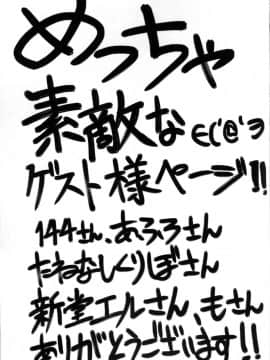 めっちゃ
素敵な∈(´@`З
ゲスト様ページ!!
144さん、あふろさん
たねむしくりぼさん
新堂エルさん、もさん
ありがとうございます!!